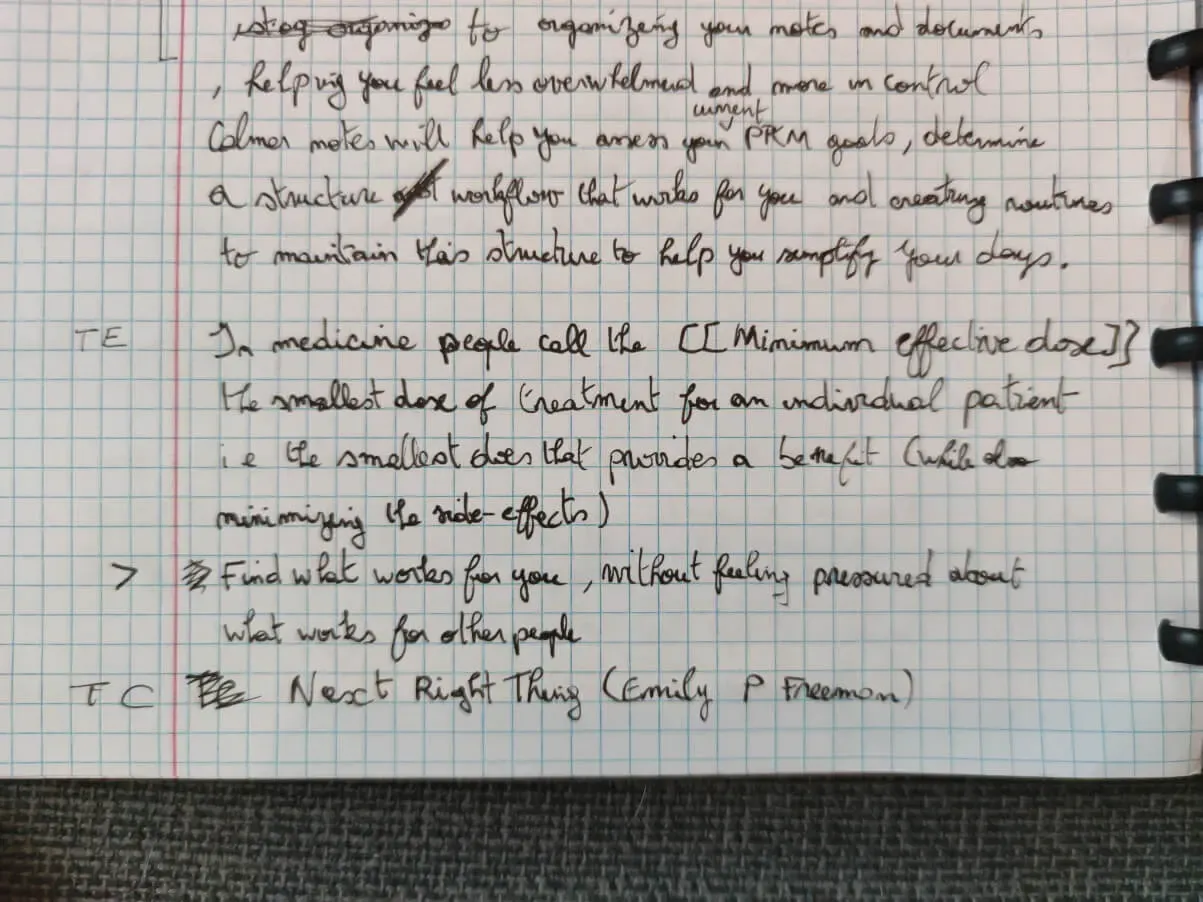 to organizing your notes and documents
, helping you feel less overwhelmed and more in control
current
Calmer notes will help you assess your PKM goals, determine
a structure workflow that works for you and creating routines
to maintain this structure to help you simplify your days.
TE In medicine people call the [[Minimum effective dose]]
the smallest dose of treatment for an individual patient
i e the smallest does that provides a benefit (while
minimizing the side-effects)
> Find what works for you, without feeling pressured about
what works for other people
TC Next Right Thing (Emily P Freeman)